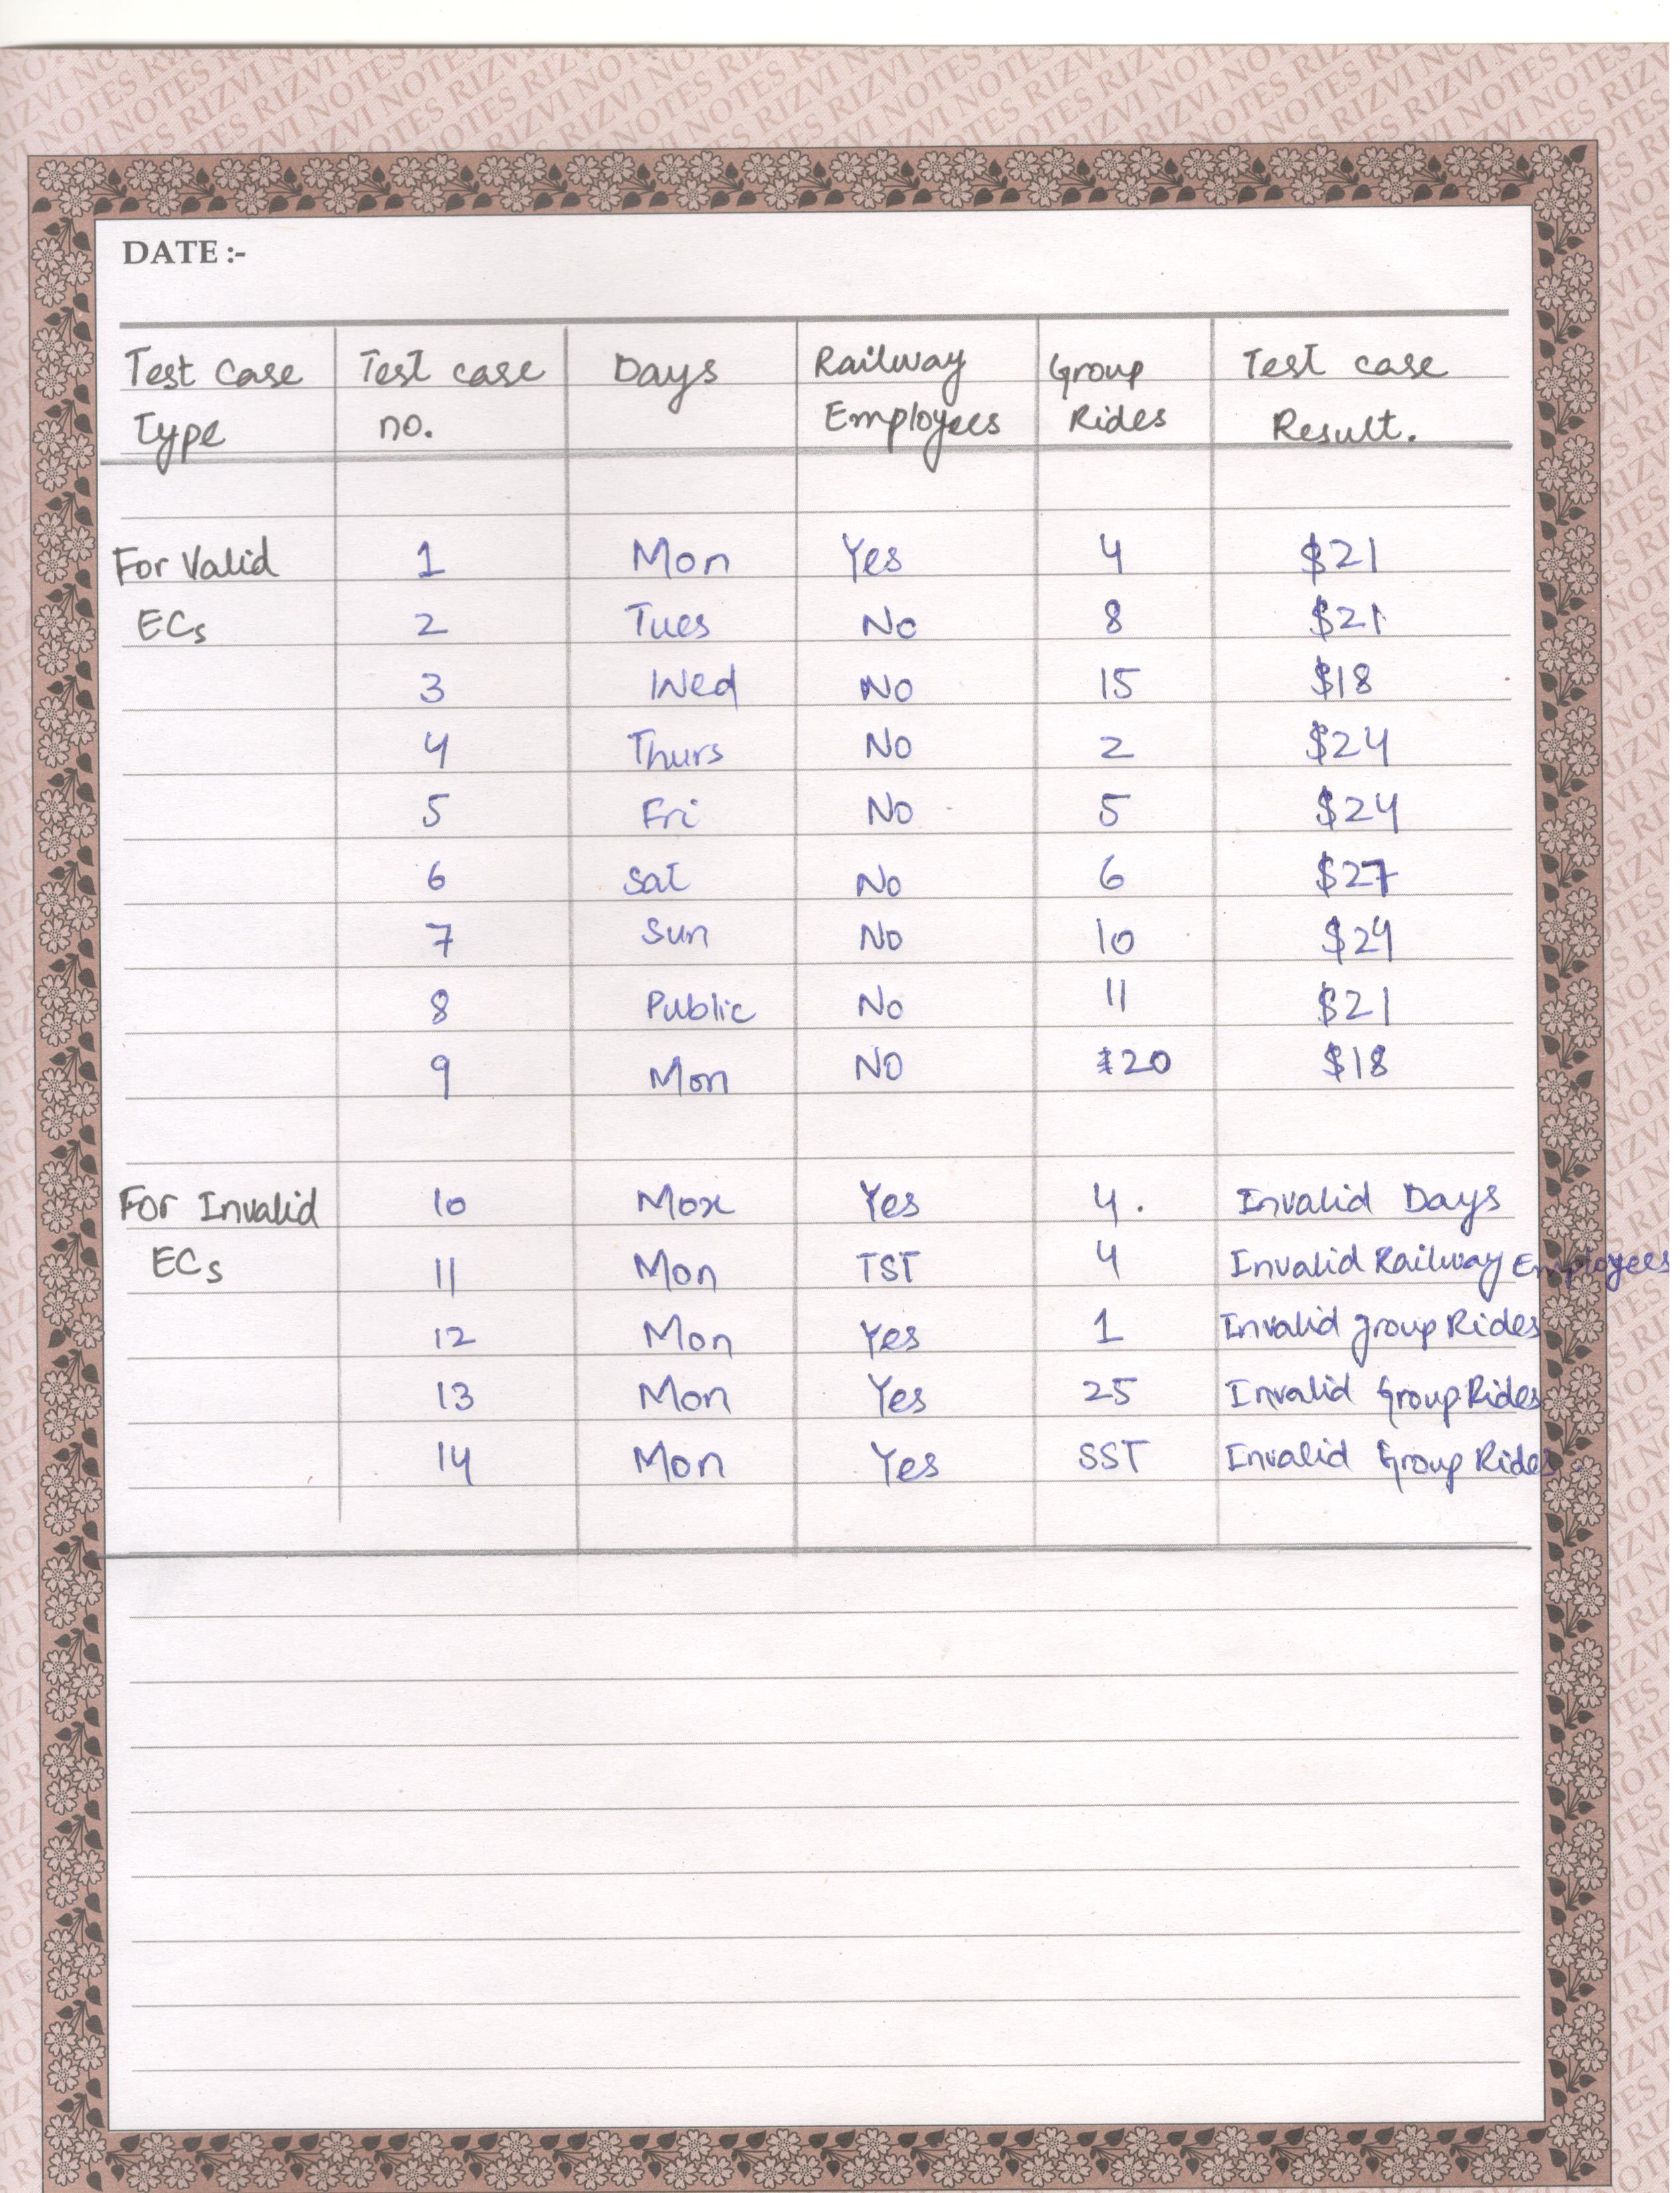 DATE :-
Test Case Type Test case no. Days Railway Employees Group Rides Test case Result.
For Valid 1 Mon Yes 4 $21
ECs 2 Tues No 8 $21
3 Wed No 15 $18
4 Thurs No 2 $24
5 Fri No 5 $24
6 Sat No 6 $27
7 Sun No 10 $24
8 Public No 11 $21
9 Mon NO 20 $18
For Invalid 10 Mox Yes 4. Invalid Days
ECs 11 Mon TST 4 Invalid Railway Employees
12 Mon Yes 1 Invalid group Rides
13 Mon Yes 25 Invalid Group Rides
14 Mon Yes SST Invalid Group Rides